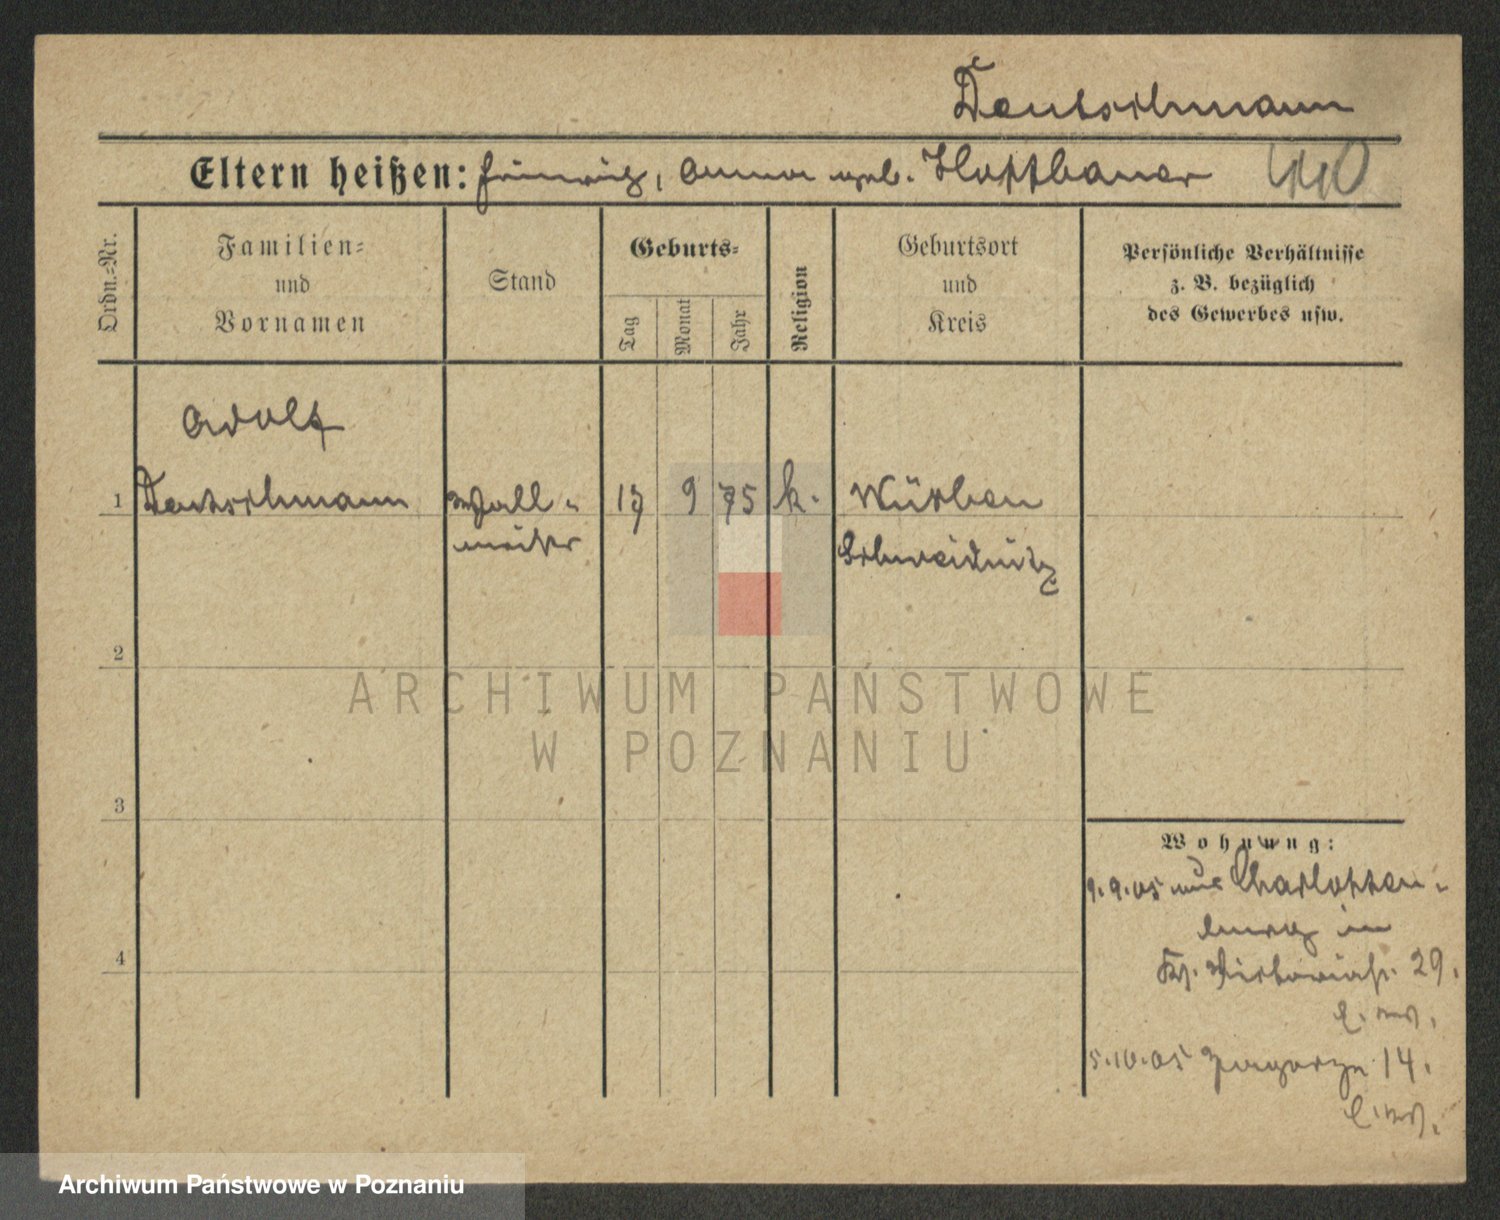 Deutschmann
Eltern heißen: Heinrich, Anna geb. Hoffbauer
Ordn.-Nr.
Familien-
und
Vornamen
Stand
Geburts-
Tag
Monat
Jahr
Religion
Geburtsort
und
Kreis
Persönliche Verhältnisse
z. B. bezüglich
des Gewerbes usw.
Adolf
1 Deutschmann Wall- 17 9 75 k. Würben
meister Schweidnitz
2
ARCHIWUM PAŃSTWOWE
W POZNANIU
3
Wohnung:
9.9.05 aus Charlotten-
burg in
Viktoriastr. 29.
5.10.05 Zagorze 14.
4
Archiwum Państwowe w Poznaniu